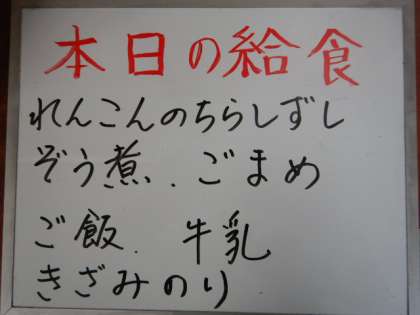 本日の給食
れんこんのちらしずし
ぞう煮.ごまめ
ご飯.牛乳
きざみのり